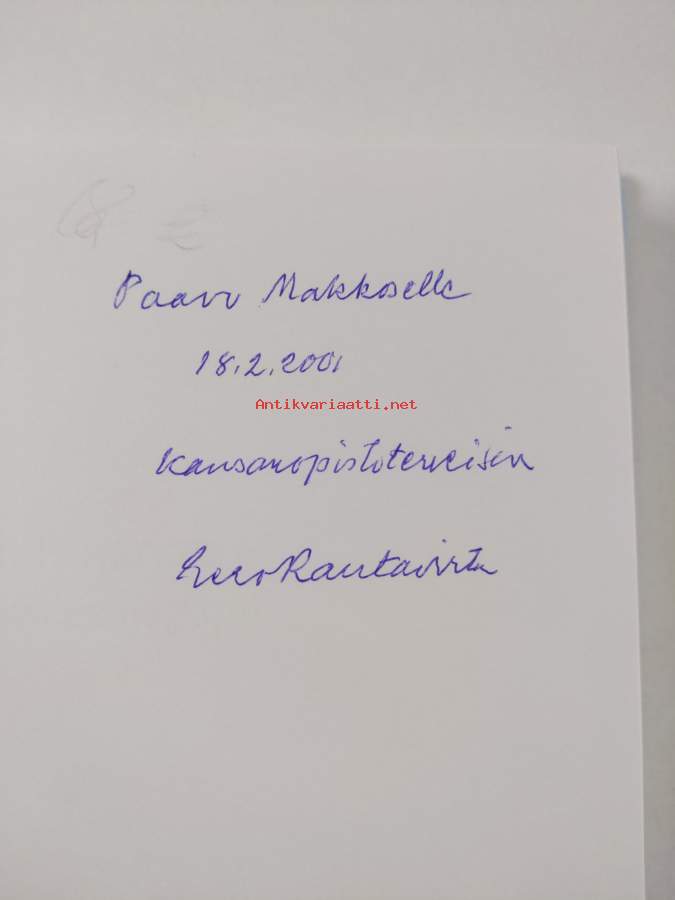 18 €
Paavo Makkoselle
18.2.2001
Antikvariaatti.net
Kansanopistoterveisin
Eero Rautavirta